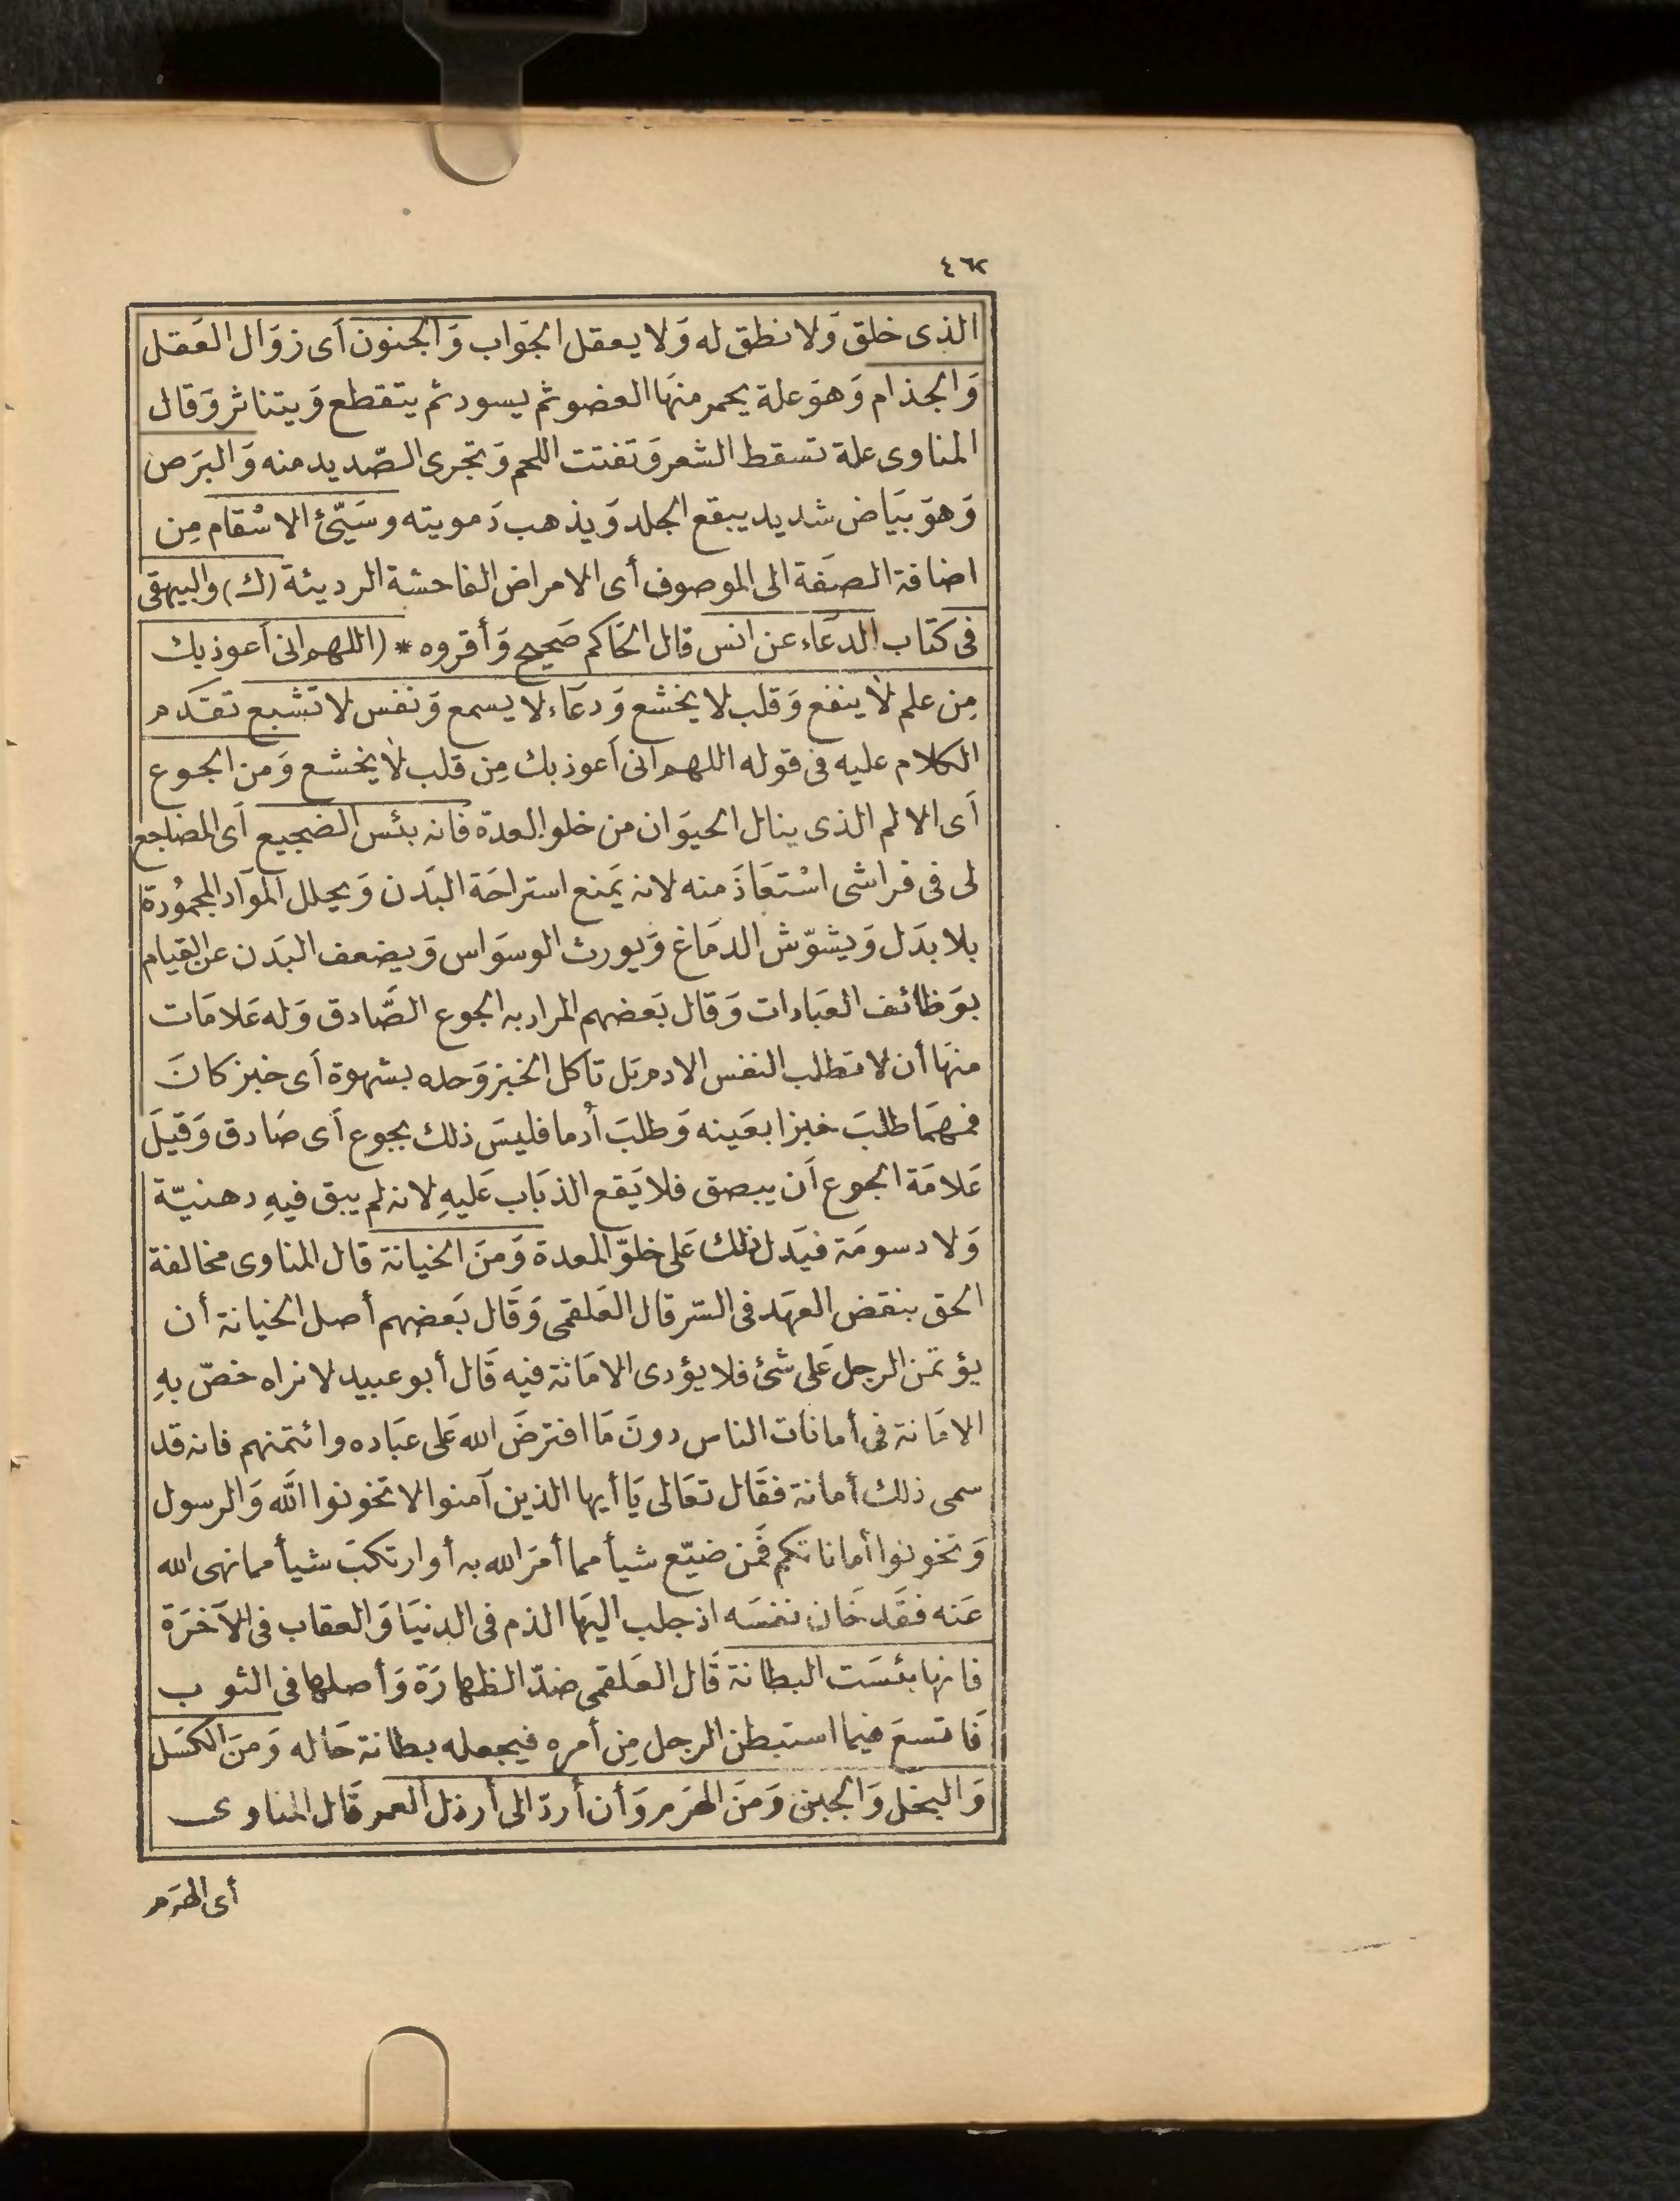 ٤٦٢
الذى خلق وَلا نطق له وَلا يعقل الجوَاب وَالجنون أى زوَال العَقل
وَالجذام وَهوَ علة يحمر منهَا العضو ثم يسود ثم يتقطع وَيتناثر وَقال
المناوى علة تسقط الشعر وَتفتت اللحم وَتجرى الصّديد منه وَالبرَص
وَهوَ بيَاض شديد يبقع الجلد وَيذهب دَمويته وسَيّئ الاسْقام مِن
اضافة الصفَة الى الموصوف أى الامراض الفاحشة الرديئة (ك) والبيهقى
فى كتاب الدعَاء عن انس قال الحَاكم صَحيح وَأقروه * (اللهم انى أعوذ بك
مِن علم لا ينفع وَقلب لا يخشع وَدعَاء لا يسمع وَنفس لا تشبع تقدَم
الكلام عليه فى قوله اللهم انى أعوذ بك مِن قلب لا يخشع وَمن الجوع
أى الالم الذى ينال الحيوَان من خلو المعدة فانه بئس الضجيع أى المضاجع
لى فى فراشى اسْتعَاذَ منه لانه يَمنع استراحَة البَدن وَيحلل الموَاد المحمُودة
بلا بدَل وَيشوّش الدمَاغ وَيورث الوسوَاس وَيضعف البَدن عن القيام
بوَظائف العبَادات وَقال بَعضهم المراد به الجوع الصَّادق وَله عَلامَات
منهَا أن لا تطلب النفس الادم بَل تأكل الخبز وَحده بشهوة أى خبز كانَ
فمهمَا طلبَ خبزا بعَينه وَطلبَ أُدما فليسَ ذلك بجوع أى صَادق وَقيلَ
عَلامَة الجوع أن يبصق فلا يَقع الذبَاب عَليهِ لانه لم يبق فيهِ دهنيّة
وَلا دسومَة فيَدل ذلك عَلى خلوّ المعدة وَمنَ الخيانة قال المناوى مخالفة
الحق بنقض العهَد فى السّر قال العَلقمى وَقَال بَعضهم أصل الخيانة أن
يؤتمن الرجل عَلى شئ فلا يؤدى الامَانة فيه قَال أبو عبيد لا نراه خصّ بهِ
الامَانة فى أمانات الناس دونَ مَا افترضَ الله عَلى عبَاده وائتمنهم فانه قد
سمى ذلك أمانة فقَال تعَالى يَا أيها الذين آمنوا لا تخونوا الله وَالرسول
وَتخونوا أماناتكم فمَن ضيّع شيأ مما أمَر الله به أو ارتكبَ شيأ مما نهى الله
عَنه فقَد خَان نفسَه اذ جلب اليهَا الذم فى الدنيَا وَالعقاب فى الآخرَة
فانها بئسَت البطانة قَال العَلقمى ضدّ الظهارَة وَأصلها فى الثوب
فَاتسعَ فيما استبطن الرجل مِن أمره فيجعله بطانة حَاله وَمنَ الكسَل
وَالبخل وَالجبن وَمنَ الهرَم وَأن أردّ الى أرذل العمر قَال المناوى
أى الهرَم